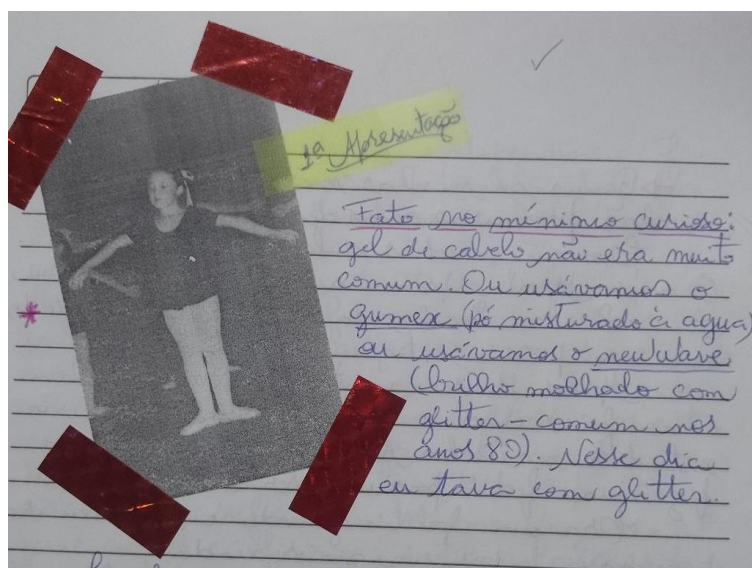 1ª Apresentação
Fato no mínimo curioso:
gel de cabelo não era muito
comum. Ou usávamos o
gumex (pó misturado à agua)
ou usávamos o newwave
(brilho molhado com
glitter - comum nos
anos 80). Nesse dia
eu tava com glitter.